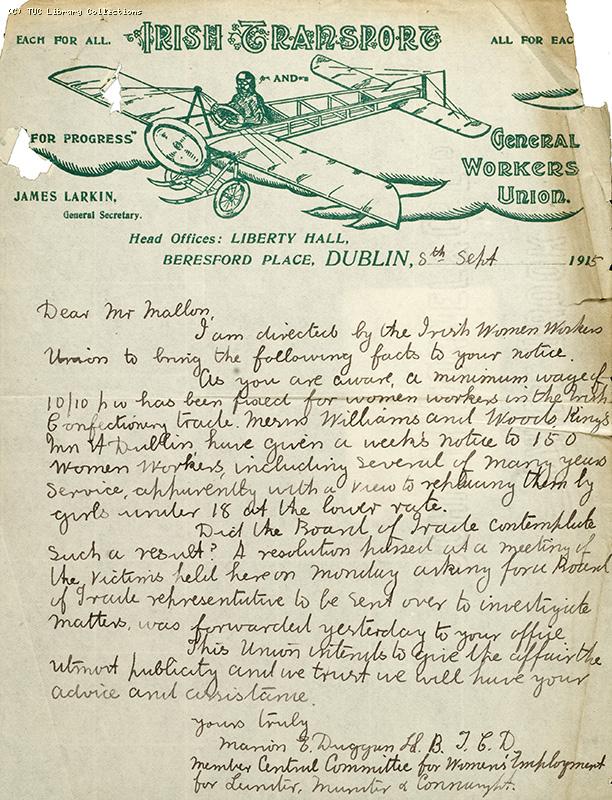 (C) TUC Library Collections
EACH FOR ALL. IRISH TRANSPORT ALL FOR EAC
AND
"FOR PROGRESS" GENERAL
WORKERS
UNION.
JAMES LARKIN,
General Secretary.
Head Offices: LIBERTY HALL,
BERESFORD PLACE, DUBLIN, 8th Sept 1915
Dear Mr Mallon,
I am directed by the Irish Women Workers
Union to bring the following facts to your notice.
As you are aware, a minimum wage of
10/10 p w has been fixed for women workers in the Irish
Confectionery trade. Messrs Williams and Woods Kings
Inn St Dublin have given a weeks notice to 150
women workers, including several of many years
service, apparently with a view to replacing them by
girls under 18 at the lower rate.
Did the Board of Trade contemplate
such a result? A resolution passed at a meeting of
the victims held here on Monday asking for a Board
of Trade representative to be sent over to investigate
matters, was forwarded yesterday to your office.
This Union intends to give the affair the
utmost publicity and we trust we will have your
advice and assistance.
yours truly
Marion E. Duggan LL. B. T. C. D.
Member Central Committee for Women's Employment
for Leinster, Munster & Connaught.